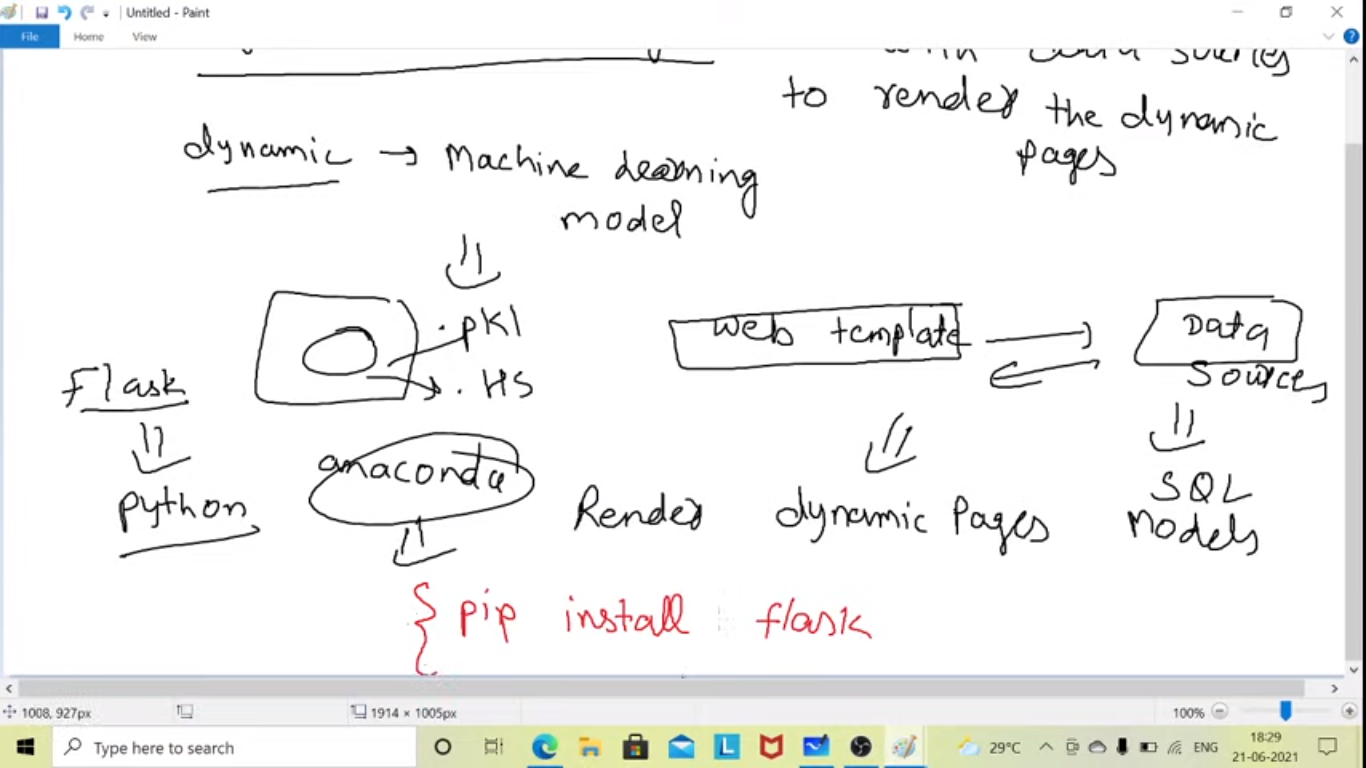 Untitled - Paint
File Home View
to render the dynamic
pages
dynamic → Machine learning
model
.pkl
.H5
Flask
python
anaconda
web template
Data
Sources
Render dynamic Pages
SQL
Models
{ pip install flask
1008, 927px
1914 × 1005px
100%
Type here to search
29°C
ENG
18:29
21-06-2021